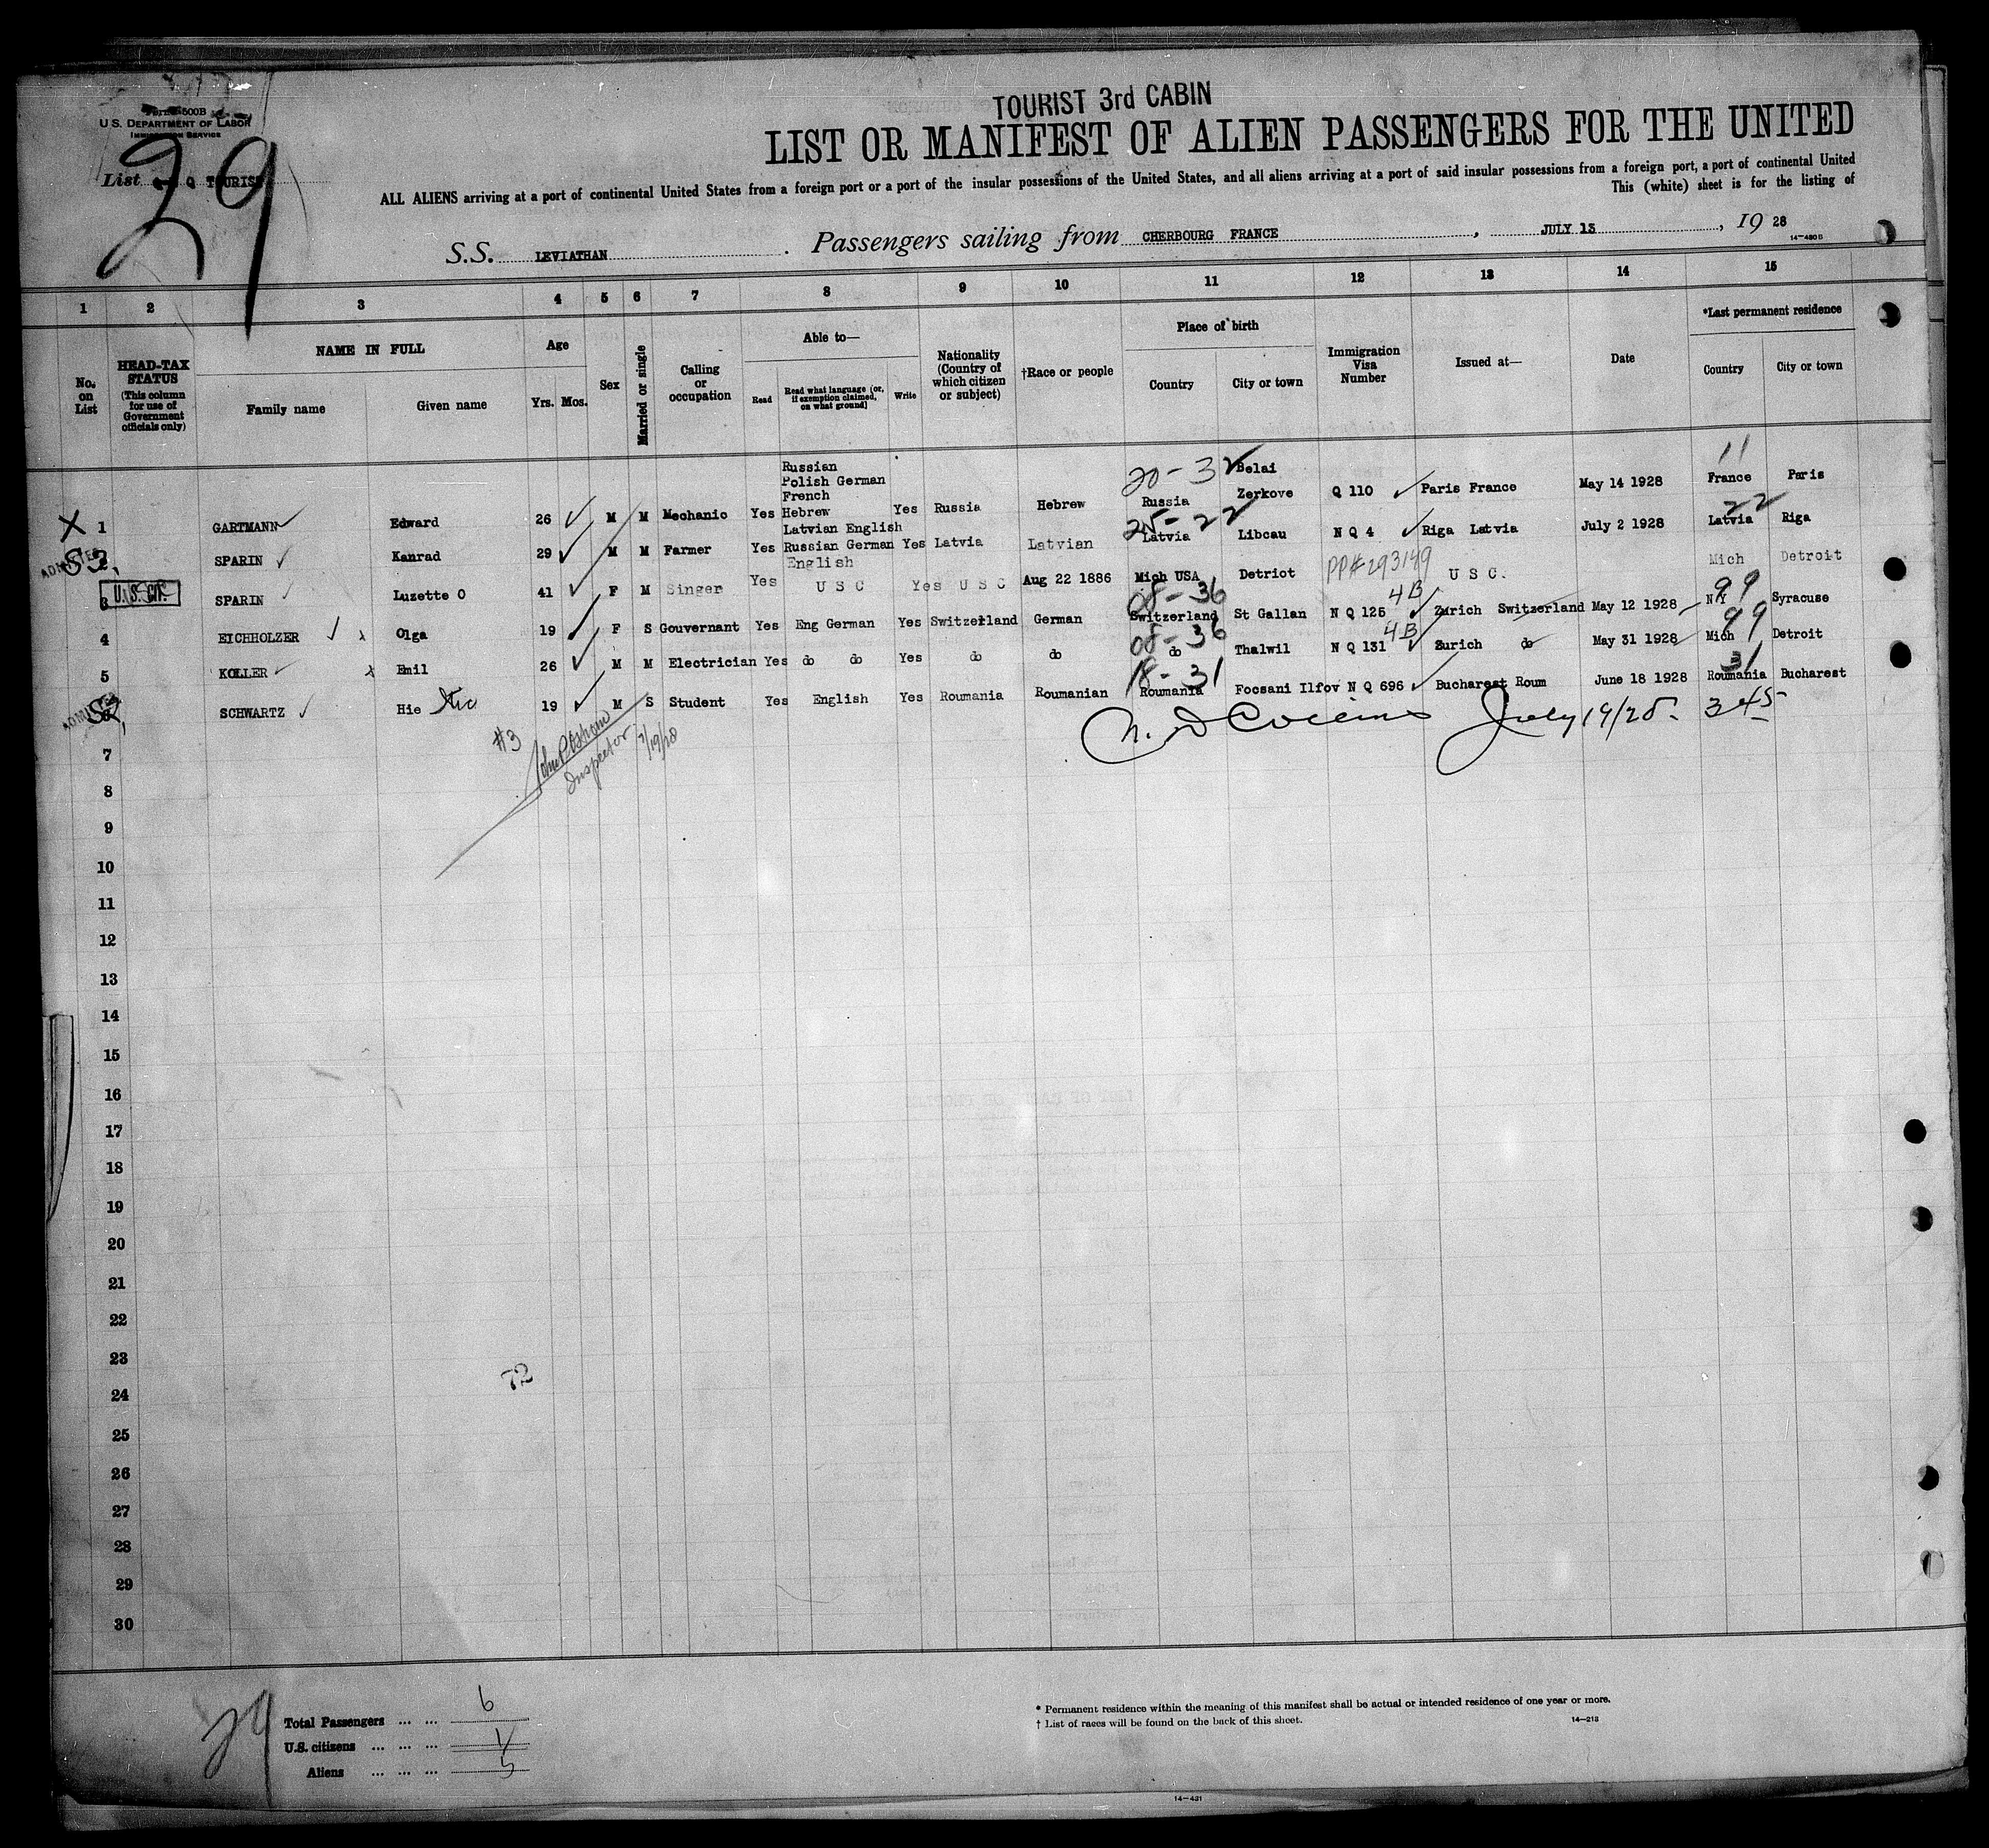 TOURIST 3rd CABIN
Form 500B
U.S. DEPARTMENT OF LABOR
IMMIGRATION SERVICE
LIST OR MANIFEST OF ALIEN PASSENGERS FOR THE UNITED
List Q TOURIST
29
ALL ALIENS arriving at a port of continental United States from a foreign port or a port of the insular possessions of the United States, and all aliens arriving at a port of said insular possessions from a foreign port, a port of continental United
This (white) sheet is for the listing of
S.S. LEVIATHAN . Passengers sailing from CHERBOURG FRANCE , JULY 13 , 19 28
14-480 B
1 2 3 4 5 6 7 8 9 10 11 12 13 14 15
No. on List
HEAD-TAX STATUS (This column for use of Government officials only)
NAME IN FULL
Family name Given name
Age
Yrs. Mos.
Sex
Married or single
Calling or occupation
Able to—
Read Read what language (or, if exemption claimed, on what ground) Write
Nationality (Country of which citizen or subject)
†Race or people
Place of birth
Country City or town
Immigration Visa Number
Issued at—
Date
*Last permanent residence
Country City or town
Russian
Polish German
French
20-32 Belai
11
X 1 GARTMANN Edward 26 M M Mechanic Yes Hebrew Yes Russia Hebrew Russia Zerkove Q 110 Paris France May 14 1928 France Paris
Latvian English
25-22
22
ADMITTED
2 SPARIN Kanrad 29 M M Farmer Yes Russian German Yes Latvia Latvian Latvia Libcau N Q 4 Riga Latvia July 2 1928 Latvia Riga
English
U.S. CIT.
3 SPARIN Luzette O 41 F M Singer Yes U S C Yes U S C Aug 22 1886 Mich USA Detriot PP# 293149 U S C. Mich Detroit
08-36 4B 99
4 EICHHOLZER x Olga 19 F S Gouvernant Yes Eng German Yes Switzerland German Switzerland St Gallan N Q 125 Zurich Switzerland May 12 1928 N Y Syracuse
08-36 4B 99
5 KOLLER x Emil 26 M M Electrician Yes do do Yes do do do Thalwil N Q 131 Zurich do May 31 1928 Mich Detroit
18-31 31
ADMITTED
6 SCHWARTZ Hie 19 M S Student Yes English Yes Roumania Roumanian Roumania Focsani Ilfov N Q 696 Bucharest Roum June 18 1928 Roumania Bucharest
July 19/28. 345
#3
Inspector 7/19/28
7
8
9
10
11
12
13
14
15
16
17
18
19
20
21
22
23
72
24
25
26
27
28
29
30
29
Total Passengers ... ... 6
U.S. citizens ... ... ... 1
Aliens ... ... ... 5
* Permanent residence within the meaning of this manifest shall be actual or intended residence of one year or more.
† List of races will be found on the back of this sheet.
14-213
14-431